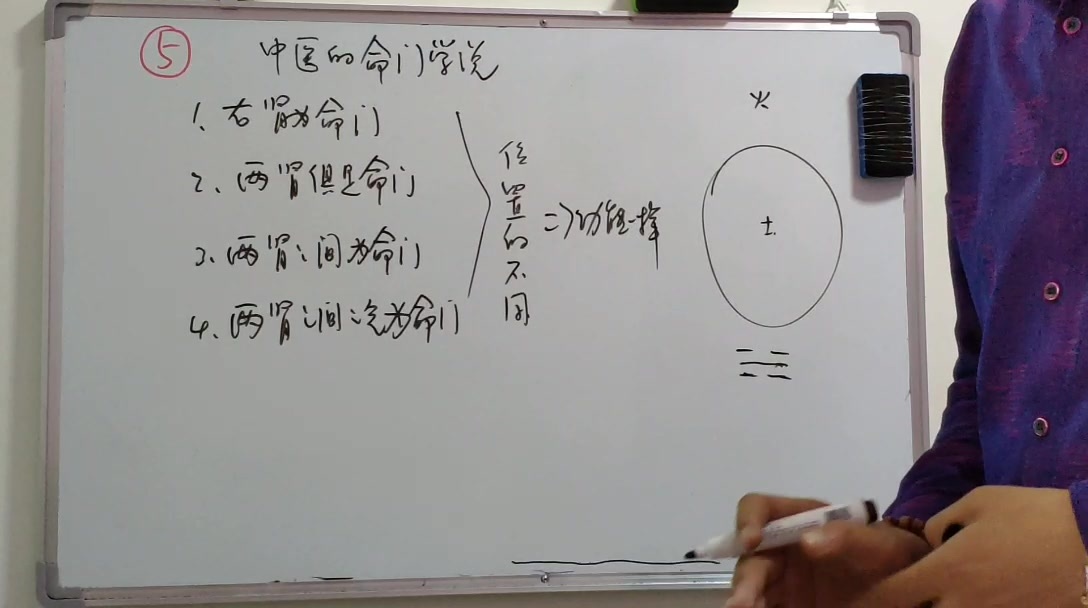 ⑤ 中医的命门学说
1、右肾为命门
2、两肾俱是命门
3、两肾之间为命门
4、两肾之间之穴为命门
位置的不同
⇒功能一样
火
土